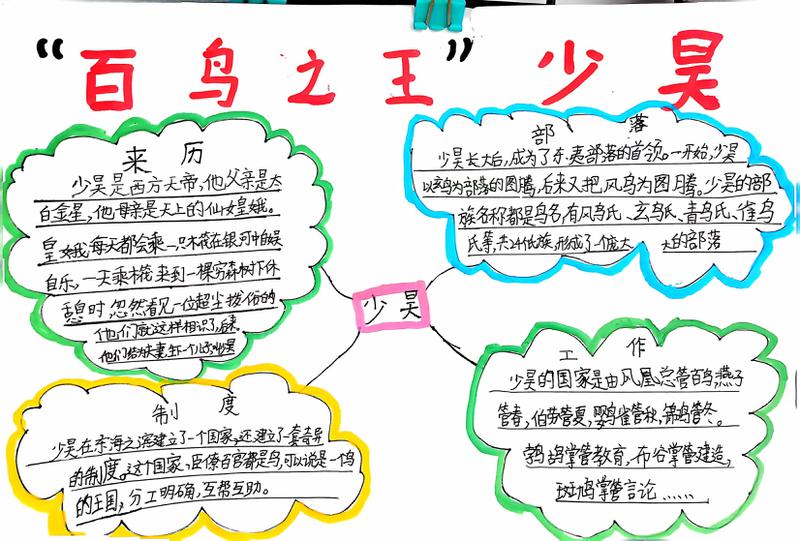 “百鸟之王”少昊
来历
少昊是西方天帝，他父亲是太
白金星，他母亲是天上的仙女皇娥。
皇娥每天都会乘一只木筏在银河中自娱
自乐，一天乘木筏来到一棵穷桑树下休
憩时，忽然看见一位超尘拔俗的
他们就这样相识了，后来
他们结为夫妻，生下一个儿子
部落
少昊长大后，成为了东夷部落的首领。一开始，少昊
以玄鸟为部落的图腾，后来又把凤鸟为图腾。少昊的部
族名称都是鸟名，有凤鸟氏、玄鸟氏、青鸟氏、雀鸟
氏等，共24氏族，形成了一个庞大 大的部落
少昊
制度
少昊在东海之滨建立了一个国家，还建立了一套奇异
的制度。这个国家、臣僚百官都是鸟，可以说是一个鸟
的王国，分工明确，互帮互助。
工作
少昊的国家是由凤凰总管百鸟，燕子
管春，伯劳管夏，鹦雀管秋，锦鸡管冬。
鹁鸪掌管教育，布谷掌管建造，
斑鸠掌管言论……